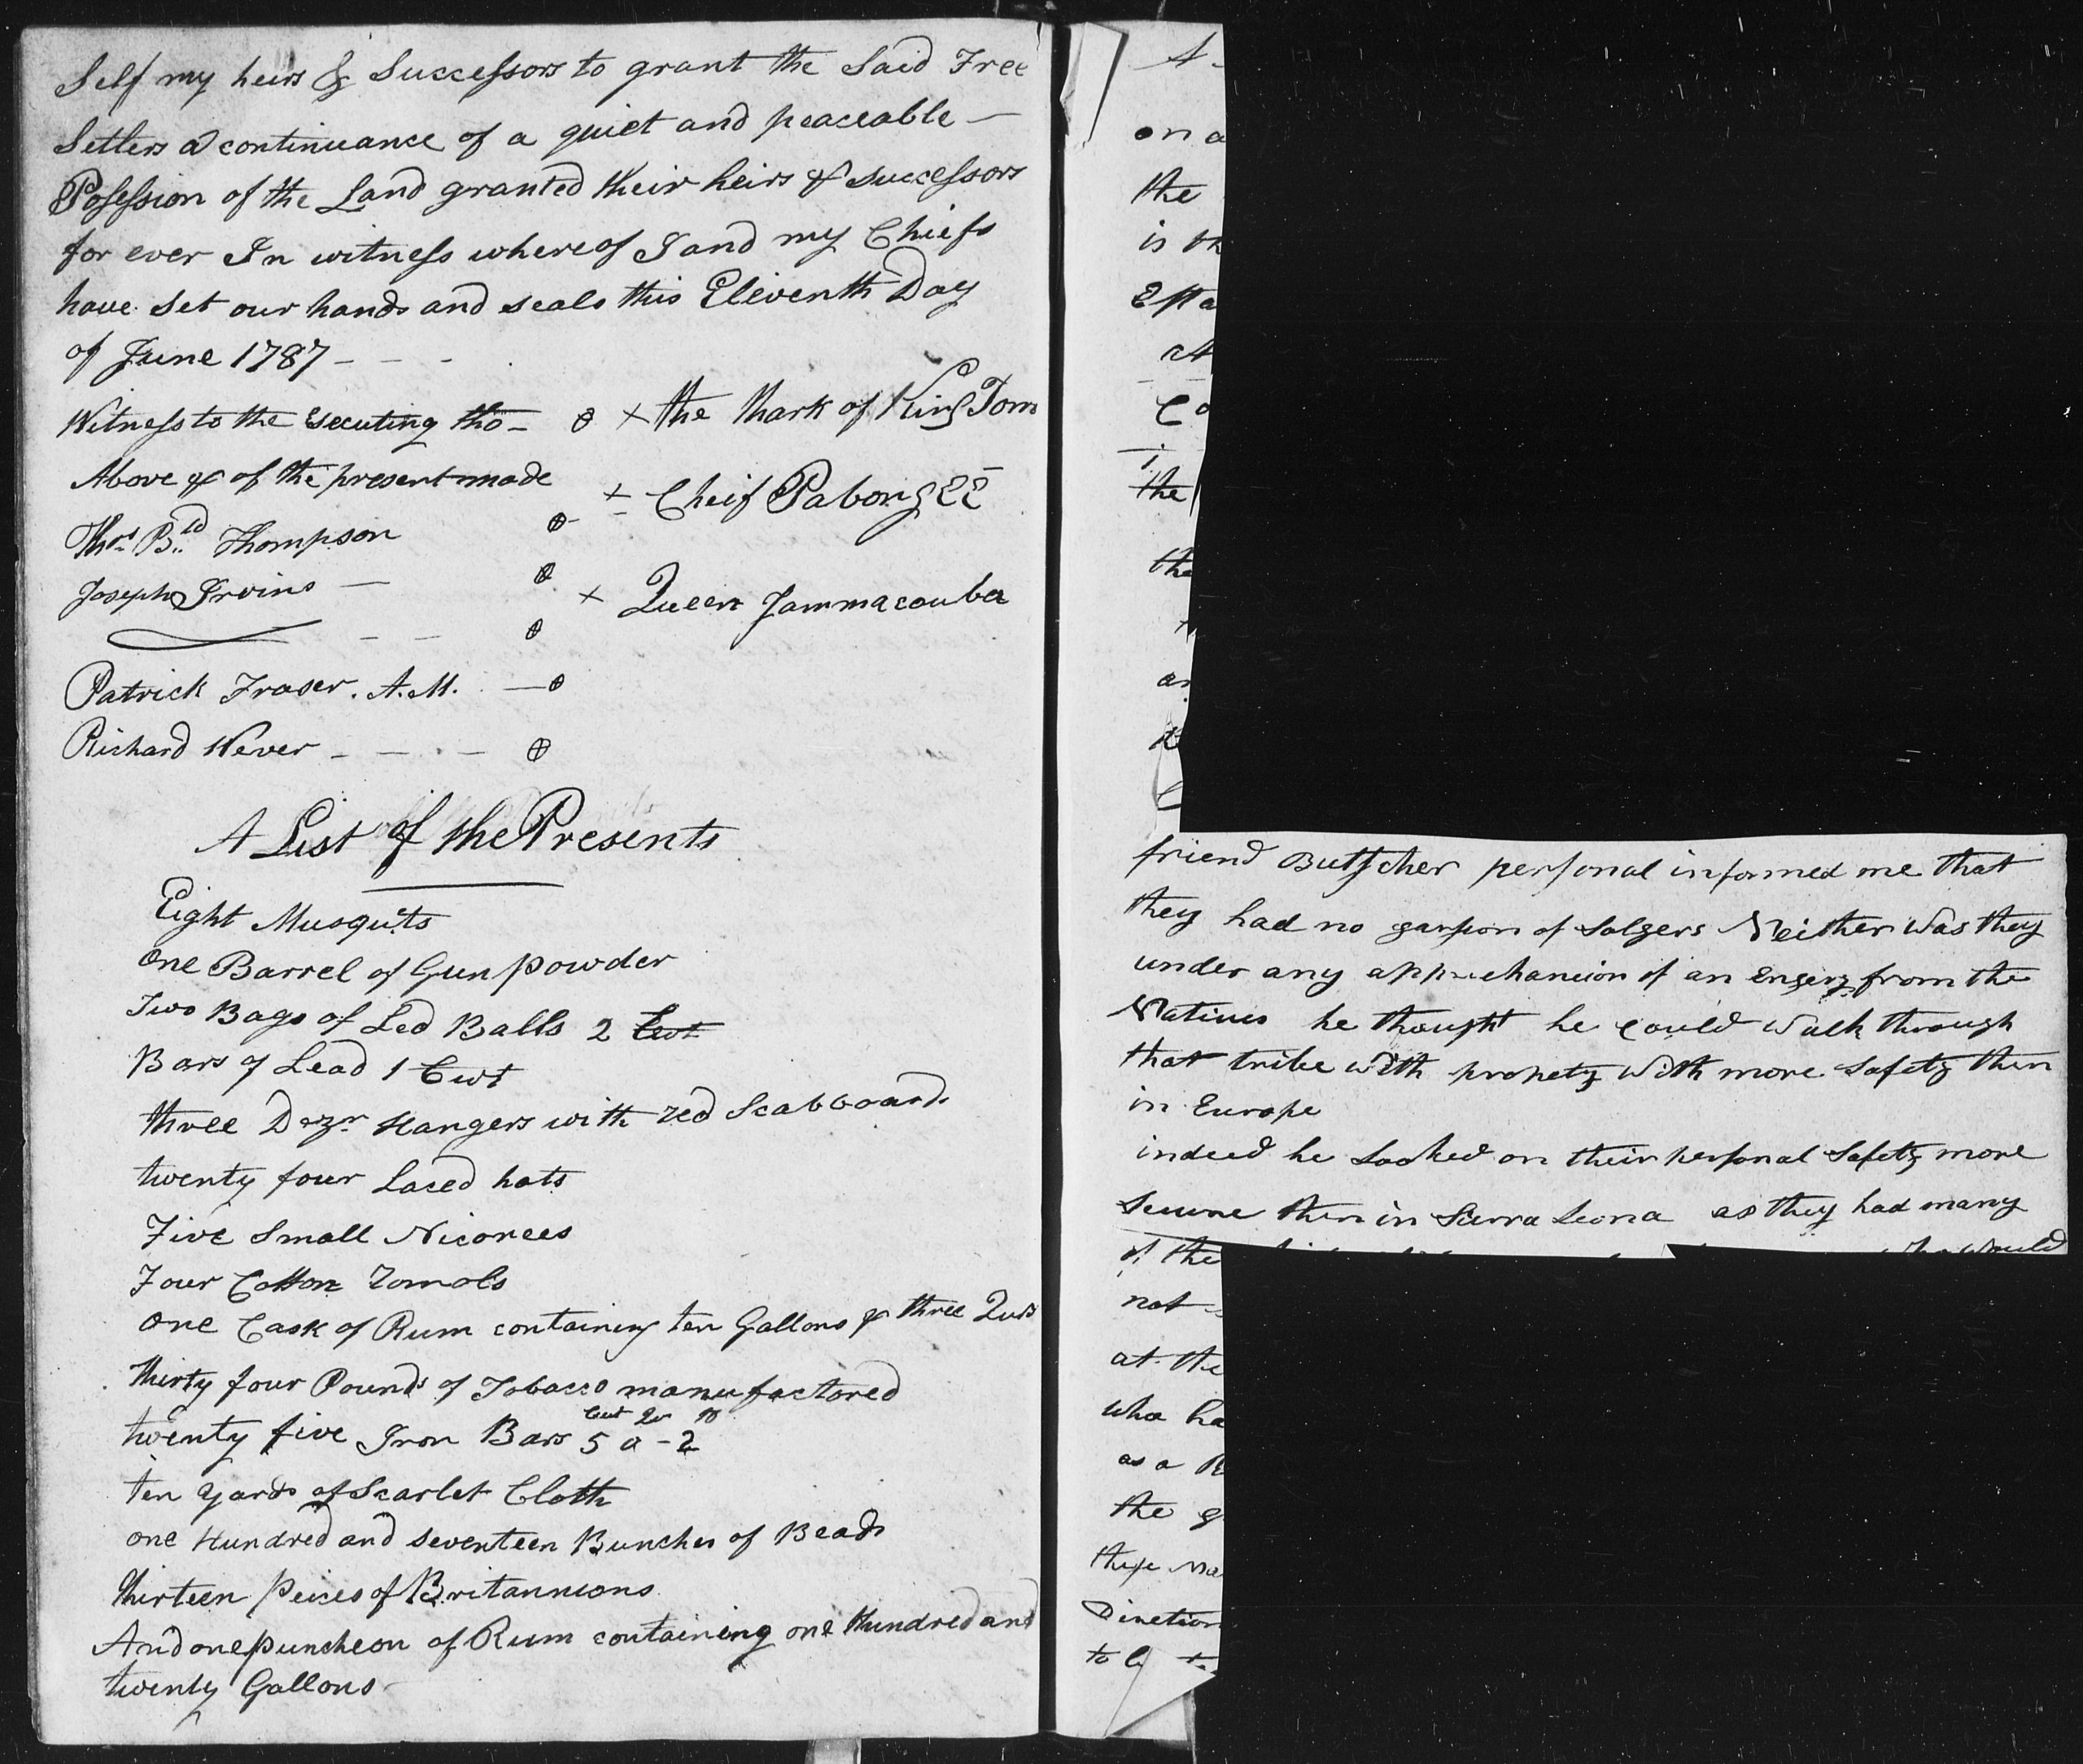 Self my heirs & Successors to grant the Said Free
Setlers a continuance of a quiet and peaceable —
Posession of the Land granted their heirs & successors
for ever In witness whereof I and my Chiefs
have set our hands and seals this Eleventh Day
of June 1787 - - -
Witness to the Executing tho - × the Mark of King Tom
Above & of the present made
+ Cheif Pabongee
Thos. Bd. Thompson
Joseph Irvins —
× Queen Jammacouba
Patrick Fraser. A.M. —
Richard Wever - - - -
A List of the Presents
Eight Musquits
One Barrel of Gun powder
Two Bags of Led Balls 2 Cwt
Bars of Lead 1 Cwt
three Dozn Hangers with red Scabboards
twenty four Laced hats
Five Small Nicorees
Four Cotton Romols
One Cask of Rum containing ten Gallons & three Qurs
thirty four Pounds of Tobacco manufactored
Cwt Qr lb
twenty five Iron Bars 5 0 - 2
ten Yards of Scarlet Cloth
one Hundred and seventeen Bunches of Beads
thirteen Peices of Britannions
And one puncheon of Rum containing one Hundred and
twenty Gallons -
A -
on a
the
is th
Esta
Co
the
the
an
friend Butscher personal informed me that
they had no garison of Solgers Neither was they
under any apprehancion of an from the
Natives he thought he could walk through
that tribe with propety with more Safety then
in Europe
indeed he Looked on their personal Safety more
Secure then in Sierra Leona as they had many
of the who would
not
at the
who ha
as a
the g
these Na
Direction
to